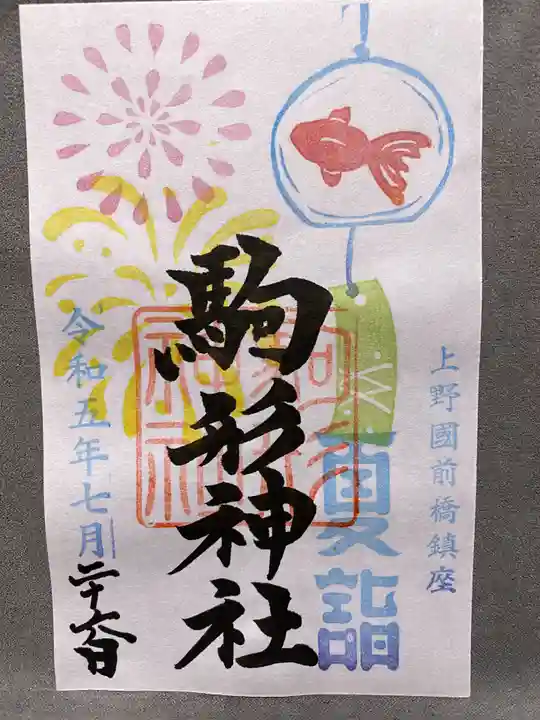 上野國前橋鎮座
夏詣
駒形神社
駒形
神社
令和五年七月
二十六日